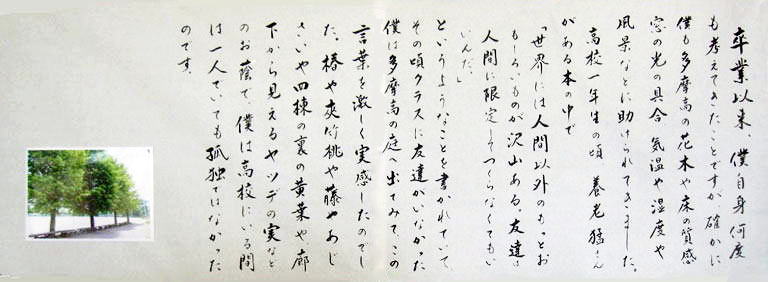 卒業以来、僕自身何度
も考えてきたことですが、確かに
僕も多摩高の花木や床の質感
窓の光の具合 気温や湿度や
風景などに助けられてきました。
高校一年生の頃 養老猛さん
がある本の中で
「世界には人間以外のもっとお
もしろいものが沢山ある。友達は
人間に限定してつくらなくてもい
いんだ。」
というようなことを書かれていて、
その頃クラスに友達がいなかった
僕は多摩高の庭へ出てみて、この
言葉を激しく実感したのでし
た。椿や夾竹桃や藤やあじ
さいや四棟の裏の黄葉や、廊
下から見えるヤツデの実など
のお蔭で、僕は高校にいる間
は一人でいても孤独ではなかった
のです。